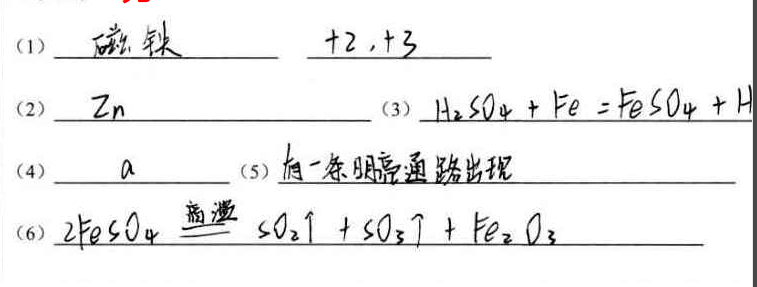 (1) 磁铁 +2,+3
(2) Zn (3) H₂SO₄ + Fe = FeSO₄ + H
(4) a (5) 有一条明亮通路出现
(6) 2FeSO₄ 高温 SO₂↑ + SO₃↑ + Fe₂O₃